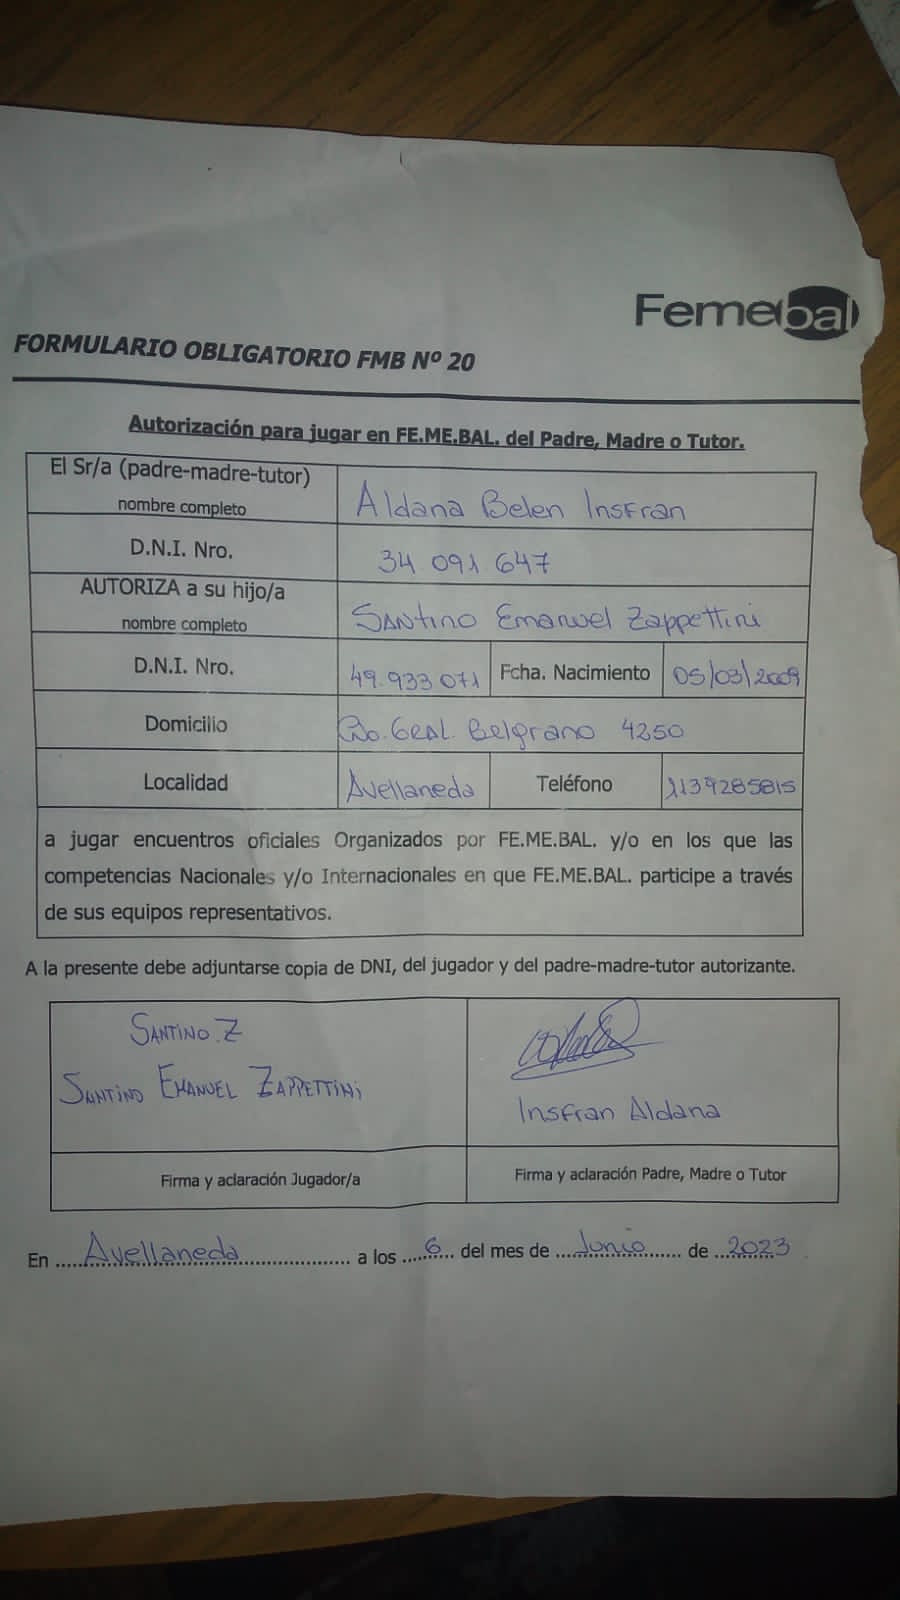 Femebal
FORMULARIO OBLIGATORIO FMB Nº 20
Autorización para jugar en FE.ME.BAL. del Padre, Madre o Tutor.
El Sr/a (padre-madre-tutor)
nombre completo
Aldana Belen Insfran
D.N.I. Nro.
34 091 647
AUTORIZA a su hijo/a
nombre completo
SANtino Emanuel Zappettini
D.N.I. Nro.
49.933 071
Fcha. Nacimiento
05/03/2009
Domicilio
Gral. Belgrano 4250
Localidad
Avellaneda
Teléfono
1139285815
a jugar encuentros oficiales Organizados por FE.ME.BAL. y/o en los que las
competencias Nacionales y/o Internacionales en que FE.ME.BAL. participe a través
de sus equipos representativos.
A la presente debe adjuntarse copia de DNI, del jugador y del padre-madre-tutor autorizante.
SANTINO.Z
SANTINO EMANUEL ZAPPETTINI
Insfran Aldana
Firma y aclaración Jugador/a
Firma y aclaración Padre, Madre o Tutor
En Avellaneda a los 6 del mes de Junio de 2023